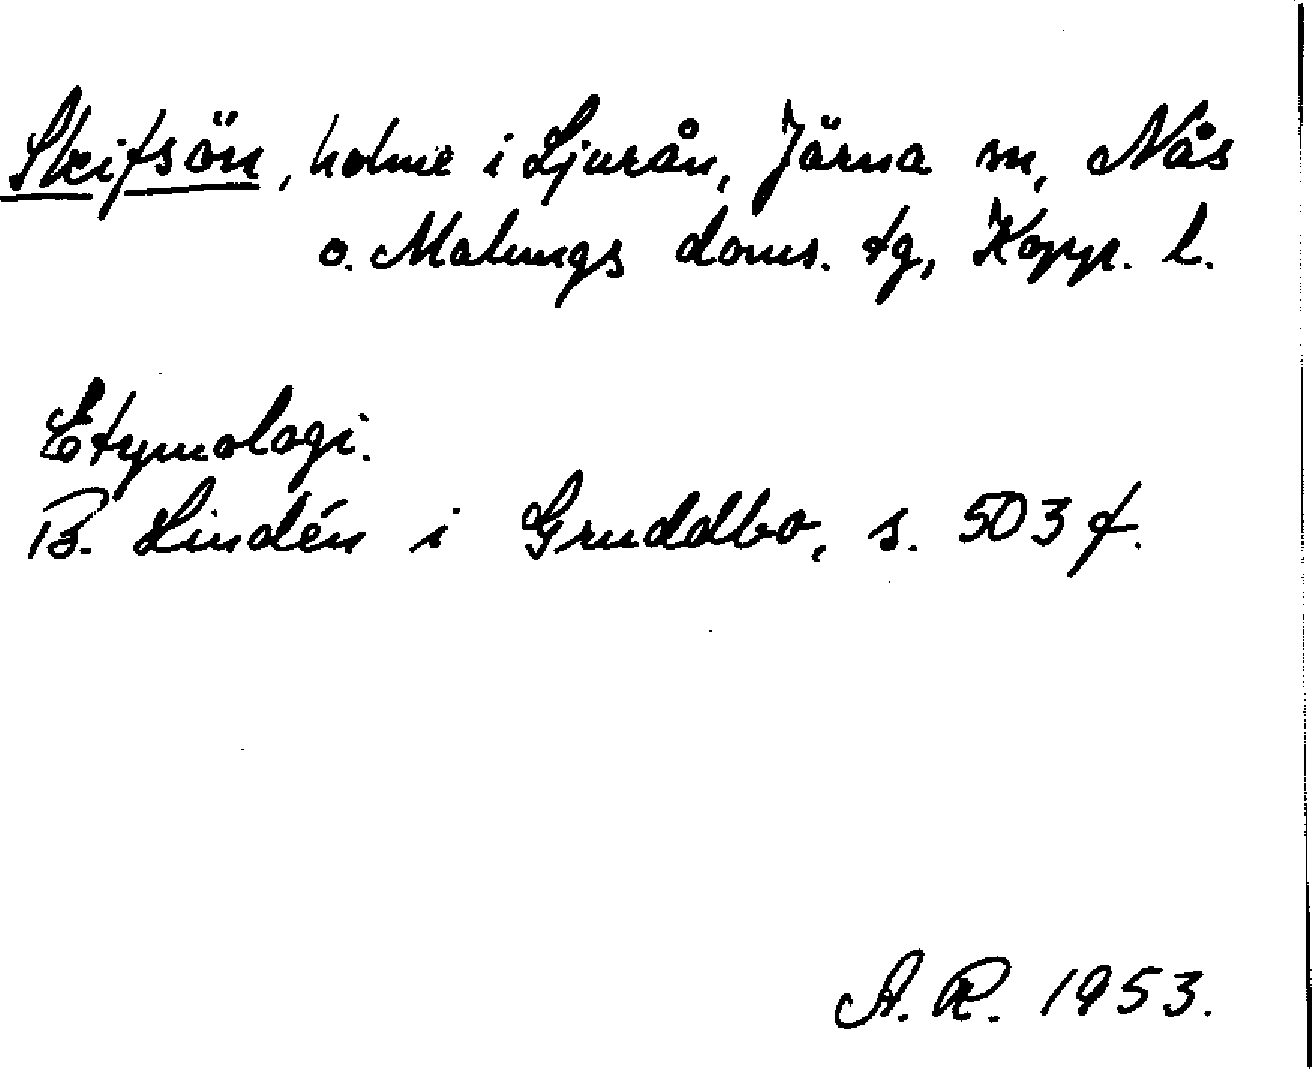 Skifsön, holme i Ljurån, Järna sn, Nås
o. Malungs doms. tg, Kopp. l.
Etymologi.
B. Lindén i Gruddbo, s. 503 f.
A. R. 1953.